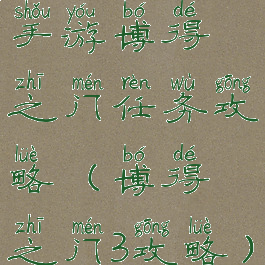 shǒu yóu bó dé
手游博得
zhī mén rèn wù gōng
之门任务攻
lüè bó dé
略（博得
zhī mén gōng lüè
之门3攻略）